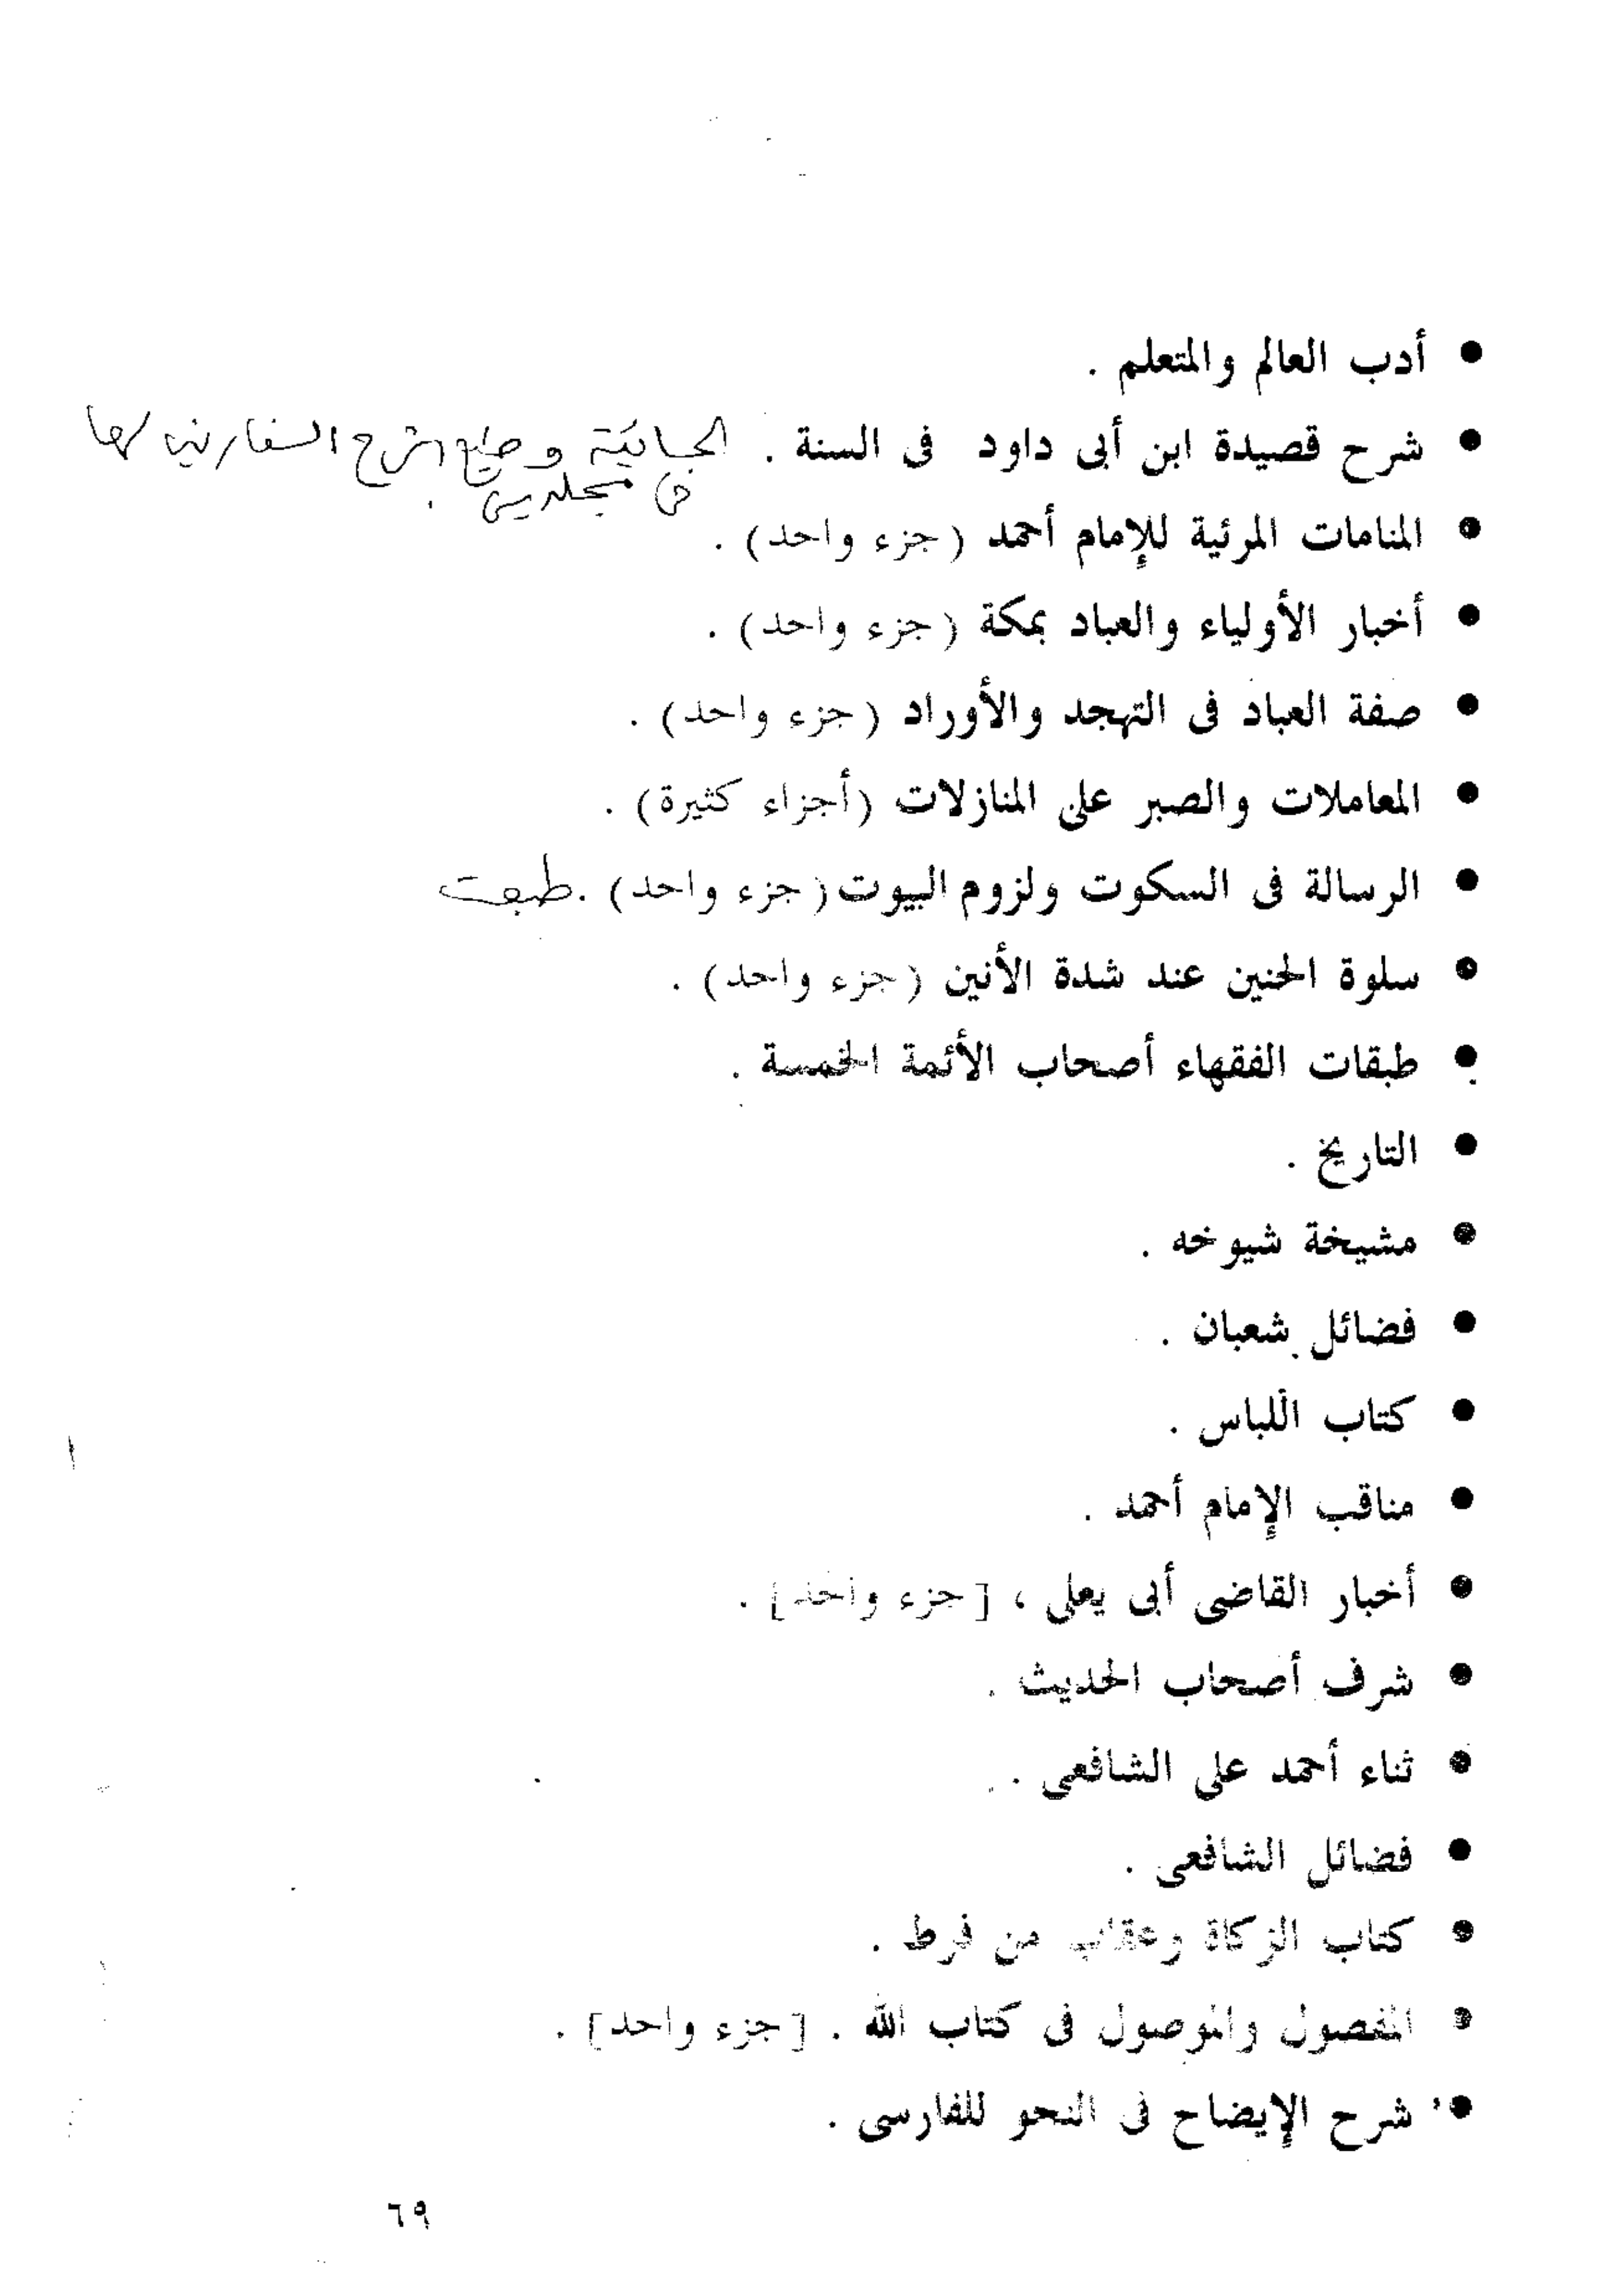 • أدب العالم والمتعلم .
• شرح قصيدة ابن أبى داود فى السنة . الحائية وطبع شرح السفاريني لها
فى مجلدين .
• المنامات المرئية للإمام أحمد ( جزء واحد ) .
• أخبار الأولياء والعباد بمكة ( جزء واحد ) .
• صفة العباد فى التهجد والأوراد ( جزء واحد ) .
• المعاملات والصبر على المنازلات ( أجزاء كثيرة ) .
• الرسالة فى السكوت ولزوم البيوت ( جزء واحد ) . طبعت
• سلوة الحنين عند شدة الأنين ( جزء واحد ) .
• طبقات الفقهاء أصحاب الأئمة الخمسة .
• التاريخ .
• مشيخة شيوخه .
• فضائل شعبان .
• كتاب اللباس .
• مناقب الإمام أحمد .
• أخبار القاضى أبى يعلى ، [ جزء واحد ] .
• شرف أصحاب الحديث .
• ثناء أحمد على الشافعى .
• فضائل الشافعى .
• كتاب الزكاة وعقاب من فرط .
• المفصول والموصول فى كتاب الله . [ جزء واحد ] .
• شرح الإيضاح فى النحو للفارسى .
٦٩